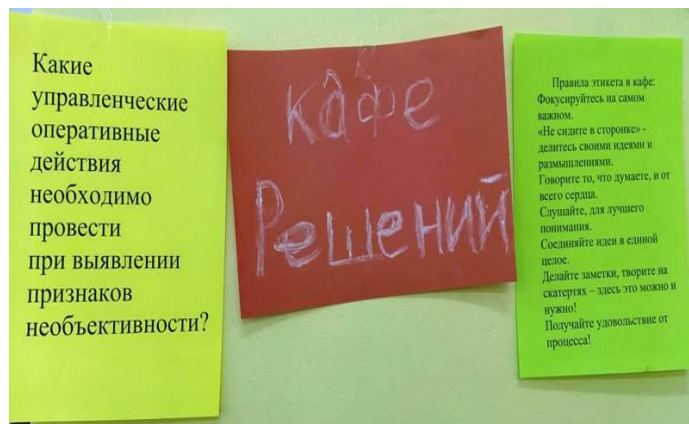 Какие
управленческие
оперативные
действия
необходимо
провести
при выявлении
признаков
необъективности?
кафе
Решений
Правила этикета в кафе:
Фокусируйтесь на самом
важном.
«Не сидите в сторонке» -
делитесь своими идеями и
размышлениями.
Говорите то, что думаете, и от
всего сердца.
Слушайте, для лучшего
понимания.
Соединяйте идеи в единой
целое.
Делайте заметки, творите на
скатертях – здесь это можно и
нужно!
Получайте удовольствие от
процесса!